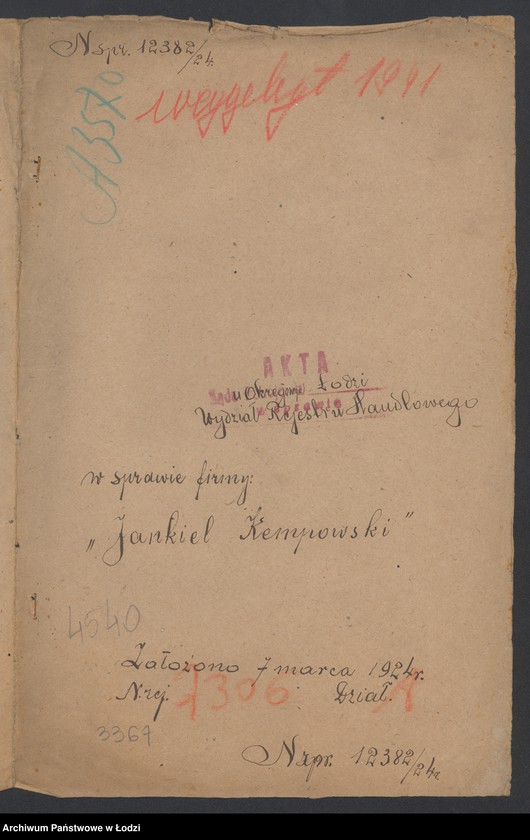 N spr. 12382/24.
weggelegt 1941
A 3570
AKTA
Sądu Okręgowego w Łodzi
Wydział Rejestru Handlowego
w sprawie
w sprawie firmy:
„Jankiel Kempowski"
4540
Założono 7 marca 1924 r.
N. rej. 7306 Dział. A
3364
N spr. 12382/24 r.
Archiwum Państwowe w Łodzi